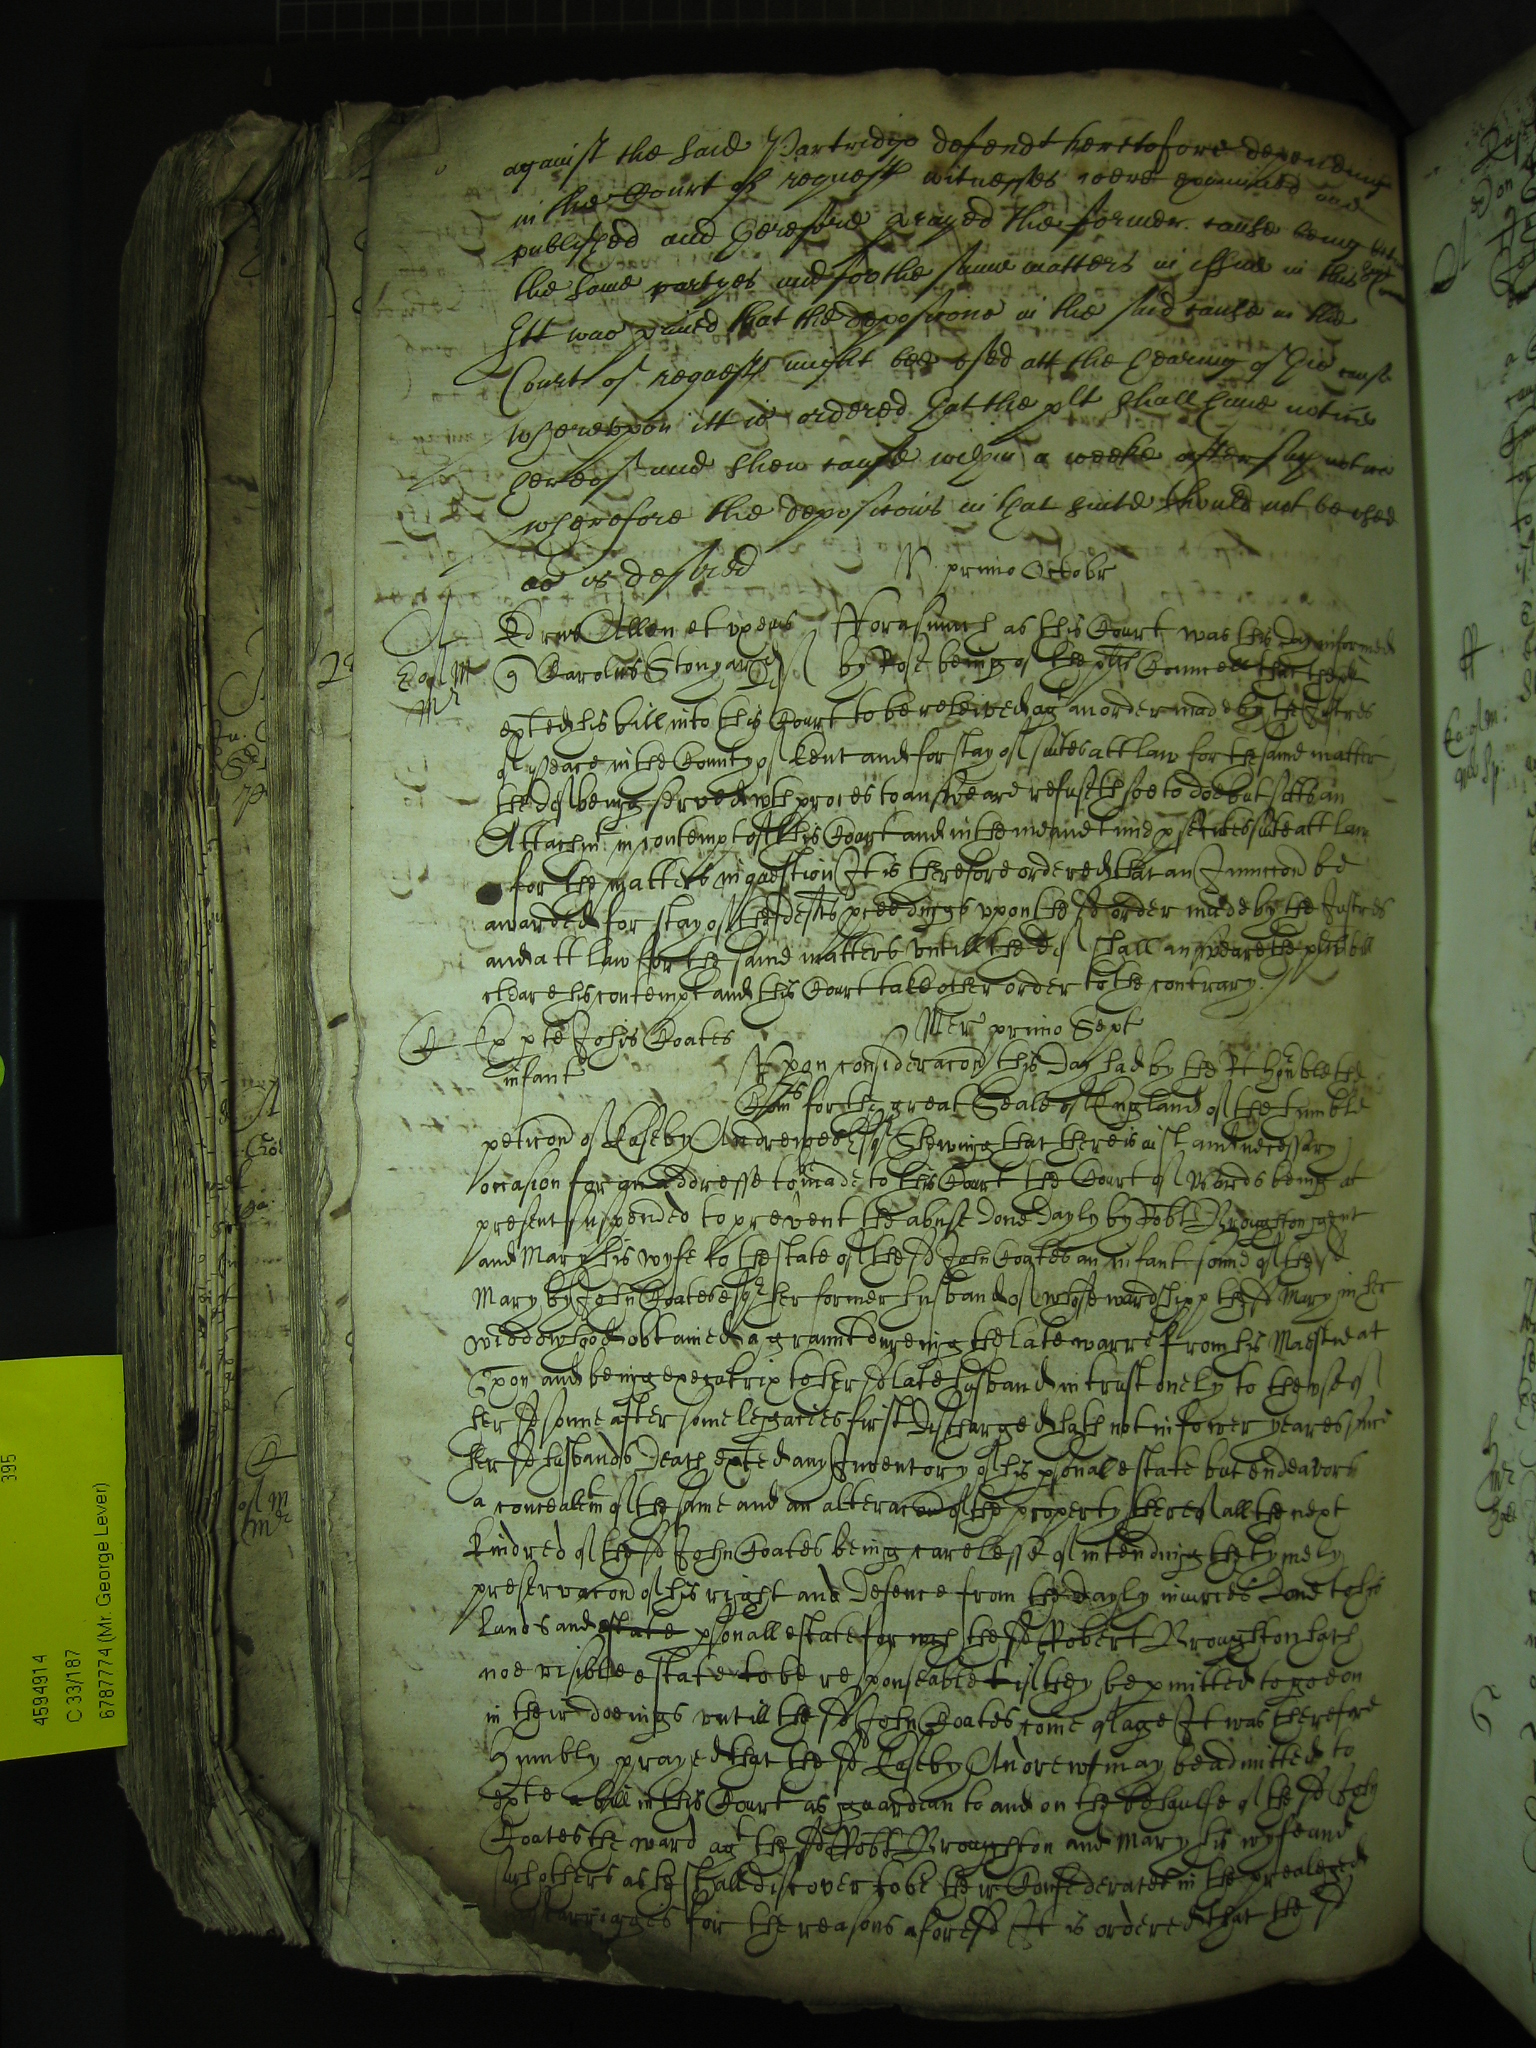 against the said Partridge defendt heretofore dependinge
in the Court of requests witnesses were examined and
published and therefore prayed the former cause being betw
the same partyes and for the same matters in issue in this Court
Itt was prayed that the depositions in the said cause in the
Court of requests might bee used att the hearing of this cause
Whereupon itt is ordered that the plt shall have notice
hereof and shew cause within a weeke after such notice
wherefore the depositions in that suite should not be used
as is desired
V primo Octobr
Edrus Allen et uxor eius
Q Carolus Stonyard def
Forasmuch as this Court was this day informed
by Rose being of the plts Councell that the plt
exted his bill into this Court to be releived agt an order made by the Justices
of peace in the County of Kent and for stay of suites att law for the same matter
the def being served wth proces to answeare refuseth soe to doe but sitts an
Attachmt in contempt of this Court and in the meane time psecutes suite att law
for the matters in question It is therefore ordered that an Iniuncon be
awarded for stay of the defts pceedings upon the sd order made by the Justices
and att law for the same matters untill the def shall answeare the plts bill
cleare his contempt and this Court take other order to the contrary
Mer primo Sept
Ex pte Johis Coates
infant
Upon consideracon this day had by the Rt honble the
Comrs for the great Seale of England of the humble
peticon of Easeby Andrewes Esqr Shewing that there is iust and necessary
occasion for an addresse to be made to this Court the Court of Wards being at
present suspended to prevent the abuse done dayly by Robt Broughton gent
and Mary his wyfe to the state of the sd John Coates an infant sonne of the sd
Mary by John Coates esqr her former husband of whose wardshipp the sd Mary in her
widdowhood obtained a graunt dureing the late warre from his Maestie at
Oxon and being executrix to her sd late husband in trust onely to the use of
her sd sonne after some legacies first discharged hath not in fower yeares since
her sd husbands death exted any Inventory of his psonal estate but endeavors
a concealemt of the same and an alteracon of the property thereof all the next
kindred of the sd John Coates being carelesse of intending the tymely
preservacon of his right and defence from the dayly iniuries done to his
lands and state psonall estate for wch the sd Robert Broughton hath
noe visible estate to be responseable if they be pmitted to goe on
in their doeings untill the sd John Coates come of age It was therefore
humbly prayed that the sd Easeby Andrewes may be admitted to
exte a bill in this Court as guardian to and on the behaulfe of the sd John
Coates the ward agt the sd Robt Broughton and Mary his wyfe and
such others as he shall discover to be their Confederates in the prealeged
Carriages for the reasons aforesd It is ordered that the sd
395
4594914
C 33/187
6787774 (Mr. George Lever)